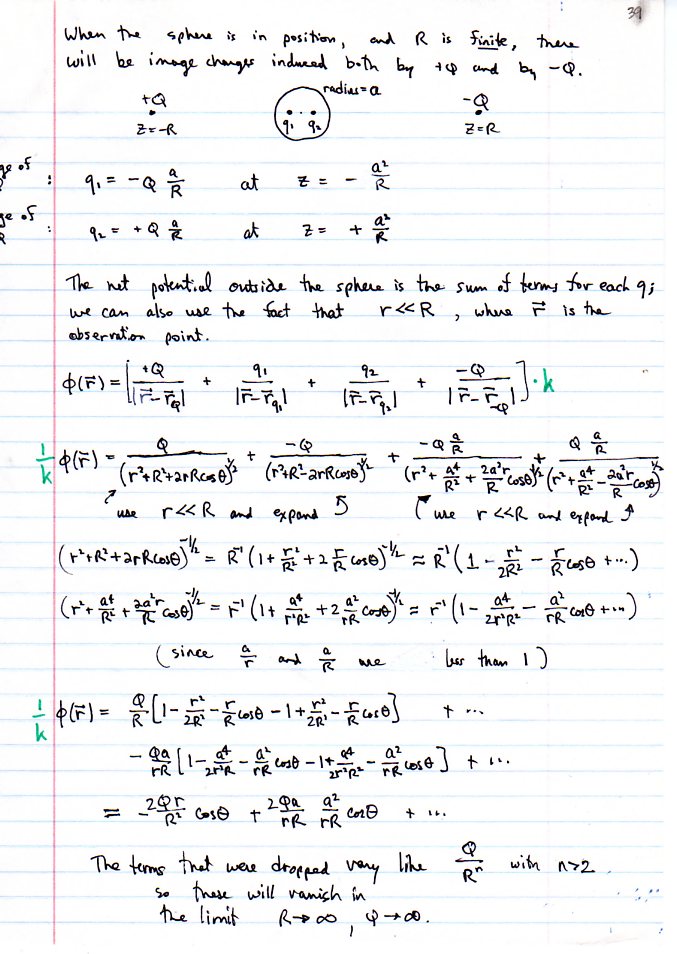 39
When the sphere is in position, and R is finite, there
will be image charges induced both by +Q and by -Q.
+Q radius=a -Q
z=-R q₁ q₂ z=R
ge of : q₁ = -Q a/R at z = - a²/R
ge of : q₂ = +Q a/R at z = + a²/R
The net potential outside the sphere is the sum of terms for each q;
we can also use the fact that r<<R, where r⃗ is the
observation point.
ϕ(r⃗) = [ +Q/|r⃗-r⃗_Q| + q₁/|r⃗-r⃗_q₁| + q₂/|r⃗-r⃗_q₂| + -Q/|r⃗-r⃗_-Q| ] · k
1/k ϕ(r⃗) = Q/(r²+R²+2rRcosθ)^½ + -Q/(r²+R²-2rRcosθ)^½ + -Q a/R/(r²+a⁴/R²+2a²r/R cosθ)^½ + Q a/R/(r²+a⁴/R²-2a²r/R cosθ)^½
use r<<R and expand use r<<R and expand
(r²+R²+2rRcosθ)^-1/2 = R⁻¹(1+r²/R²+2 r/R cosθ)^-1/2 ≈ R⁻¹(1 - r²/2R² - r/R cosθ + ...)
(r²+a⁴/R²+2a²r/R cosθ)^-1/2 = r⁻¹(1+a⁴/r²R²+2 a²/rR cosθ)^-1/2 ≈ r⁻¹(1 - a⁴/2r²R² - a²/rR cosθ + ...)
(since a/r and a/R are less than 1)
1/k ϕ(r⃗) = Q/R [1 - r²/2R² - r/R cosθ - 1 + r²/2R² - r/R cosθ] + ...
- Qa/rR [1 - a⁴/2r²R² - a²/rR cosθ - 1 + a⁴/2r²R² - a²/rR cosθ] + ...
= -2Qr/R² cosθ + 2Qa/rR a²/rR cosθ + ...
The terms that were dropped vary like Q/Rⁿ with n>2
so these will vanish in
the limit R→∞, Q→∞.